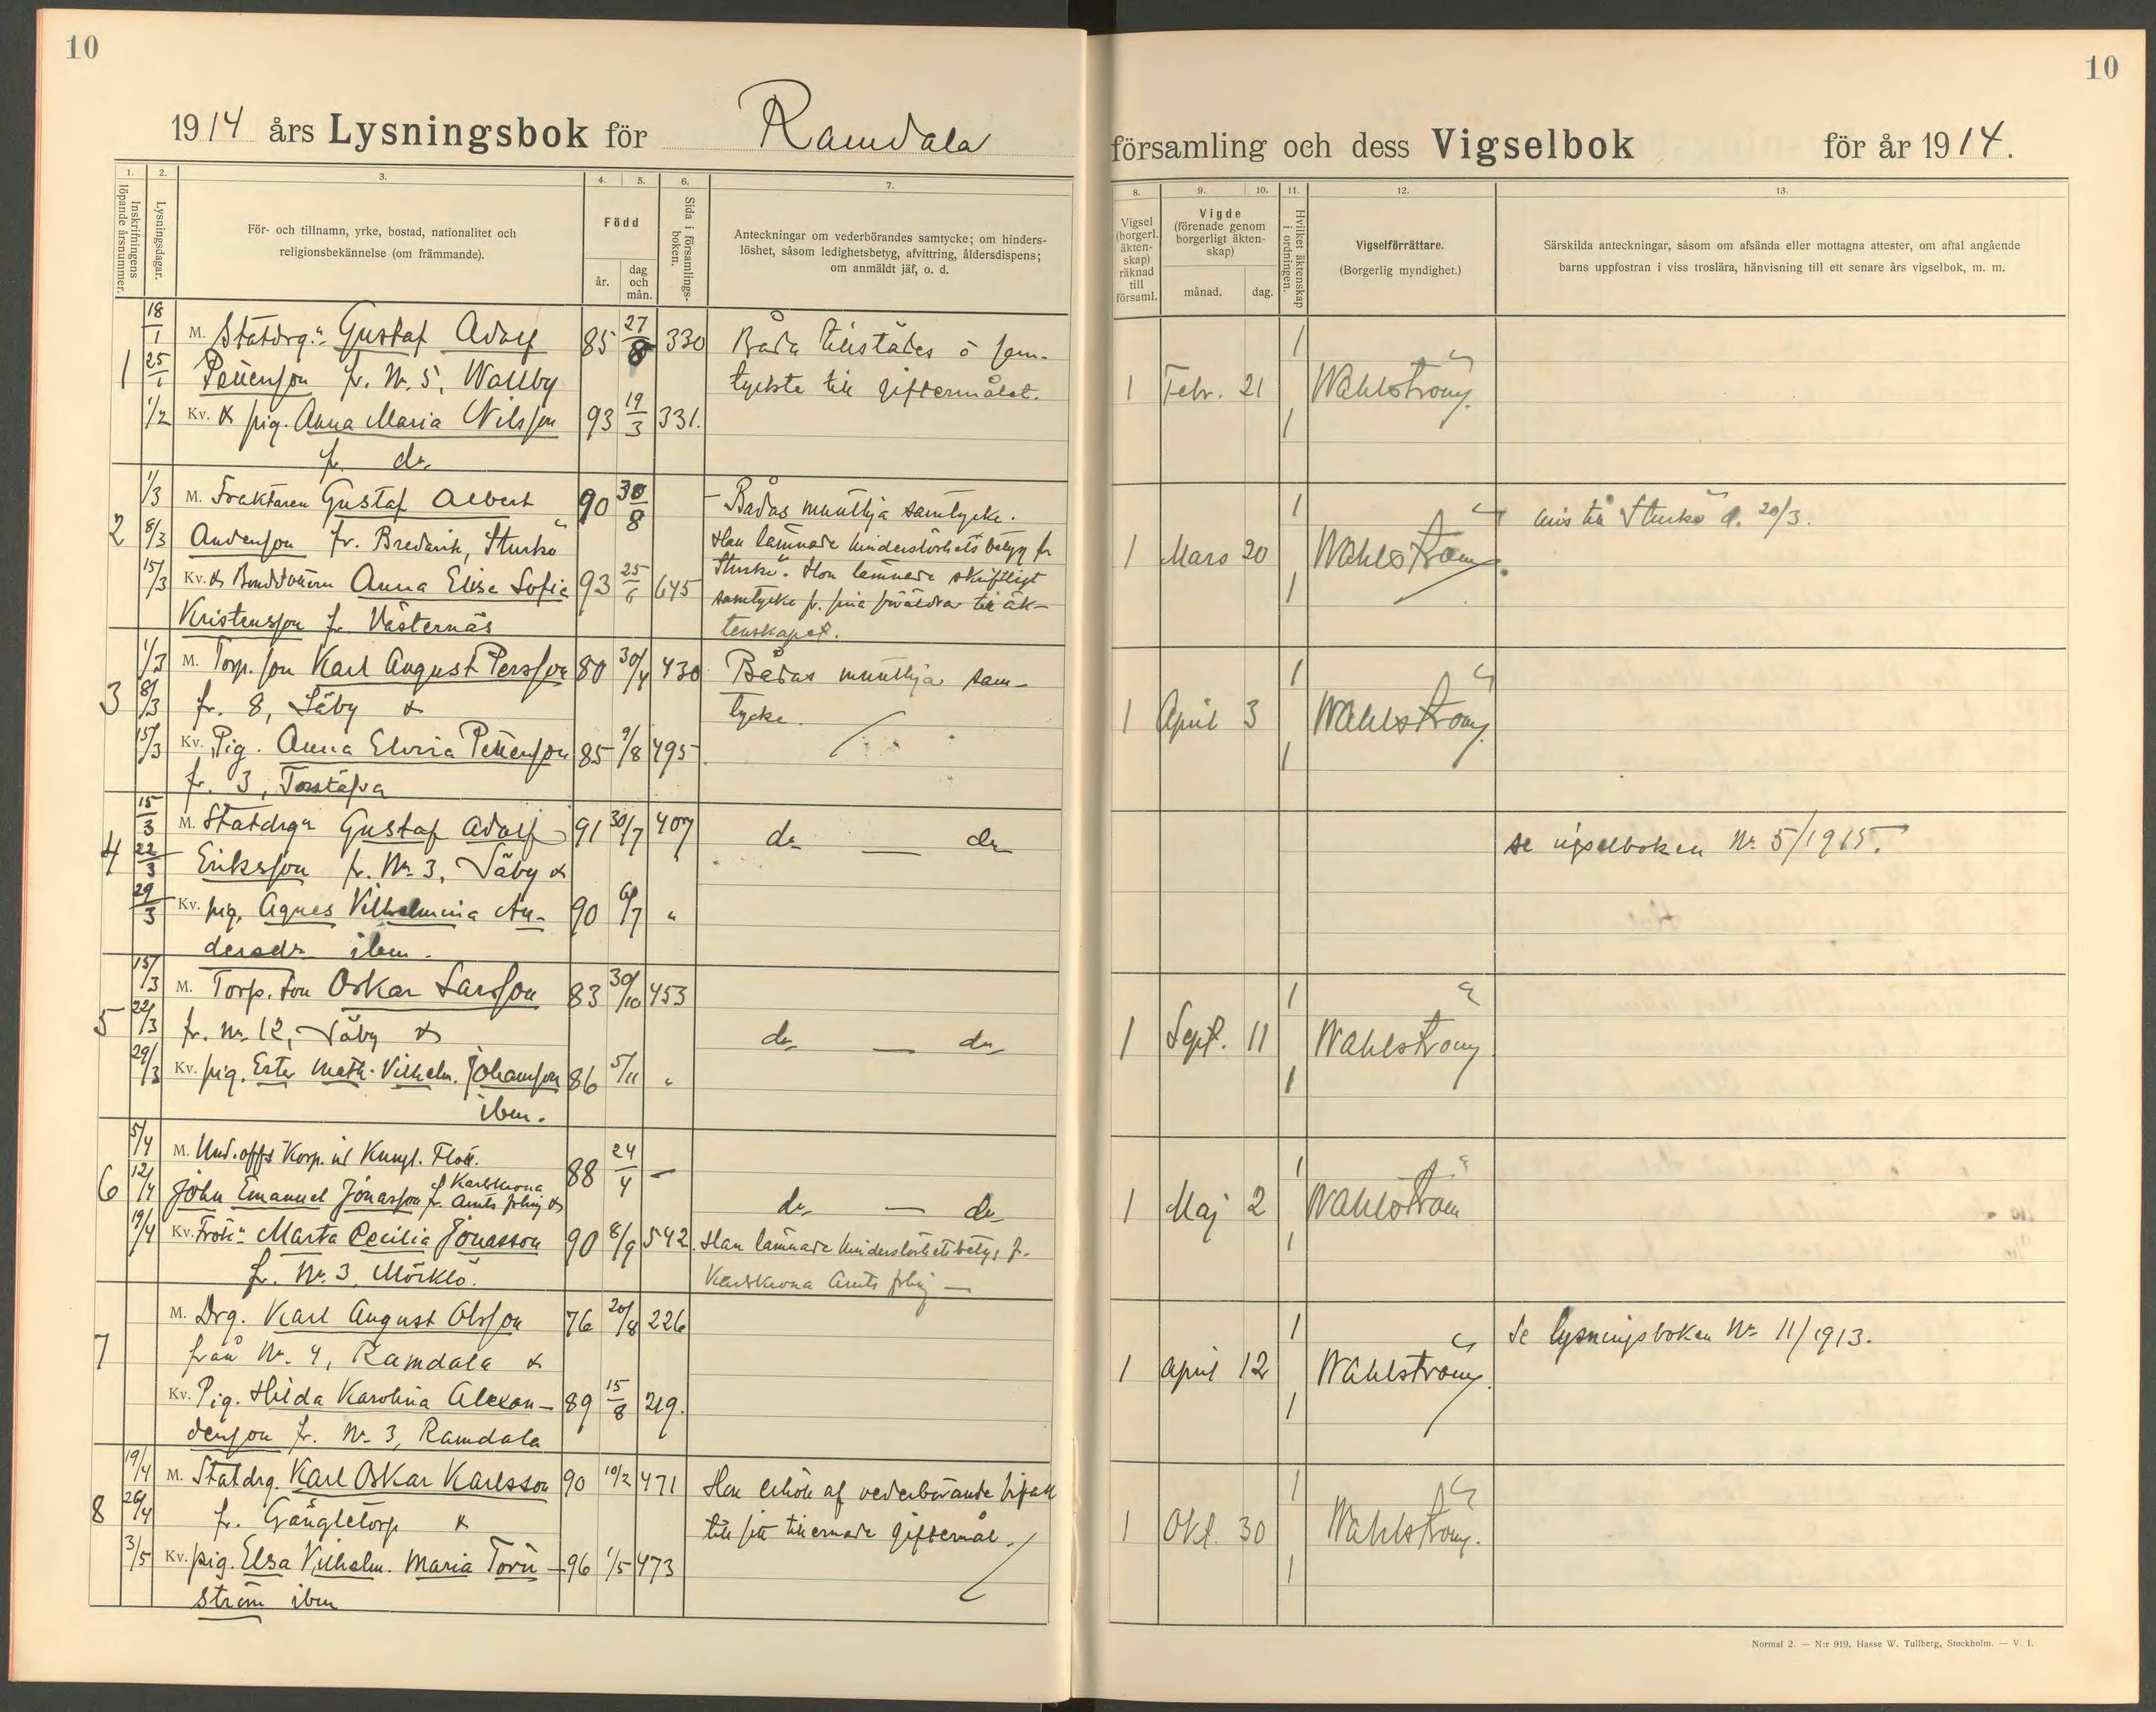 10
1914 års Lysningsbok för Ramdala
1.
2.
3.
4.
5.
6.
7.
Inskrifningens löpande årsnummer.
Lysningsdagar.
För- och tillnamn, yrke, bostad, nationalitet och
religionsbekännelse (om främmande).
Född
år.
dag och mån.
Sida i församlings-boken.
Anteckningar om vederbörandes samtycke; om hinders-
löshet, såsom ledighetsbetyg, afvittring, åldersdispens;
om anmäldt jäf, o. d.
18/1 M. Statdrg. Gustaf Adolf 85 27/8 330 Båda tillstädes o sam-
1 25/1 Pettersson fr. Nr. 5, Wallby tyckte till giftermålet.
1/2 Kv. & pig. Anna Maria Nilsson 93 19/3 331.
fr. do
1/3 M. Fraktaren Gustaf Albert 90 30/8 Bådas muntliga samtycke.
2 8/3 Andersson fr. Bredavik, Sturkö Han lämnade hinderslöshetsbetyg fr
15/3 Kv. & Bonddottern Anna Elise Sofia 93 25/6 645 Sturkö. Hon lämnade skriftligt
Kristensson fr. Västernäs samtycke fr. sina föräldrar till äk-
tenskapet.
1/3 M. Torp. son Karl August Persson 80 30/4 430 Bådas muntliga sam-
3 8/3 fr. 8, Säby & tycke.
15/3 Kv. Pig. Anna Elvira Pettersson 85 9/8 495
fr. 3, Torstäfva
15/3 M. Statdrg Gustaf Adolf 91 30/7 407 do — do
4 22/3 Eriksson fr. Nr. 3, Säby &
29/3 Kv. pig. Agnes Vilhelmina An- 90 6/7 "
dersdr ibm.
15/3 M. Torp. son Oskar Larsson 83 30/10 453
5 22/3 fr. Nr. 12, Säby & do — do
29/3 Kv. pig. Ester Math. Vilhelm. Johansson 86 5/11 "
ibm.
5/4 M. Und. offs Korp. vid Kungl. Flott. 88 24/4 —
6 12/4 John Emanuel Jonasson fr. Karlskrona Amts förs &
do — do
19/4 Kv. Frök. Marta Cecilia Jonasson 90 8/9 542. Han lämnade hinderslöshetsbetyg fr.
fr. Nr. 3, Mörklö. Karlskrona Amts förs —
M. Drg. Karl August Olsson 76 20/8 226
7 från Nr. 4, Ramdala &
Kv. Pig. Hilda Karolina Alexan- 89 15/8 219.
dersson fr. Nr. 3, Ramdala
19/4 M. Statdrg. Karl Oskar Karlsson 90 10/2 471 Hon erhöll af vederbörande bifall
8 26/4 fr. Gängletorp & till sitt tillernade giftermål.
3/5 Kv. pig. Elsa Vilhelm. Maria Törn- 96 1/5 473
ström ibm
10
församling och dess Vigselbok för år 1914.
8.
9.
10.
11.
12.
13.
Vigsel (borgerl. äkten-skap) räknad till församl.
Vigde
(förenade genom borgerligt äkten-skap)
månad.
dag.
Hvilket äktenskap i ordningen.
Vigselförrättare.
(Borgerlig myndighet.)
Särskilda anteckningar, såsom om afsända eller mottagna attester, om aftal angående
barns uppfostran i viss troslära, hänvisning till ett senare års vigselbok, m. m.
1 Febr. 21 1 1 Wahlström
1 Mars 20 1 1 Wahlström till Sturkö d. 20/3.
1 April 3 1 1 Wahlström
se vigselboken Nr. 5/1915.
1 Sept. 11 1 1 Wahlström
1 Maj 2 1 1 Wahlström
1 April 12 1 1 Wahlström. Se lysningsboken Nr. 11/1913.
1 Okt. 30 1 1 Wahlström.
Normal 2. — N:r 919, Hasse W. Tullberg, Stockholm. — V. I.